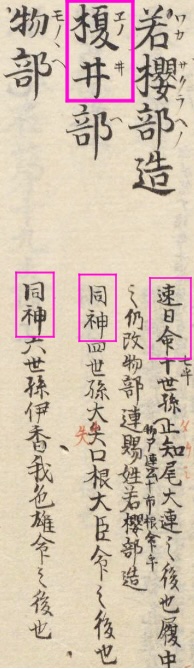 若櫻部造
ワカサクラヘノ
速日命七世孫止知尾大連之後也履中
之仍改物部連賜姓若櫻部造
榎井部
エノ井ヘ
同神四世孫大矢口根大臣命之後也
矢
物部
モノヽヘ
同神六世孫伊香我色雄命之後也